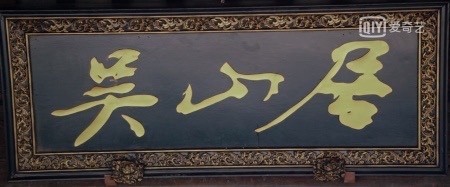 吴山居
iQIYI 爱奇艺